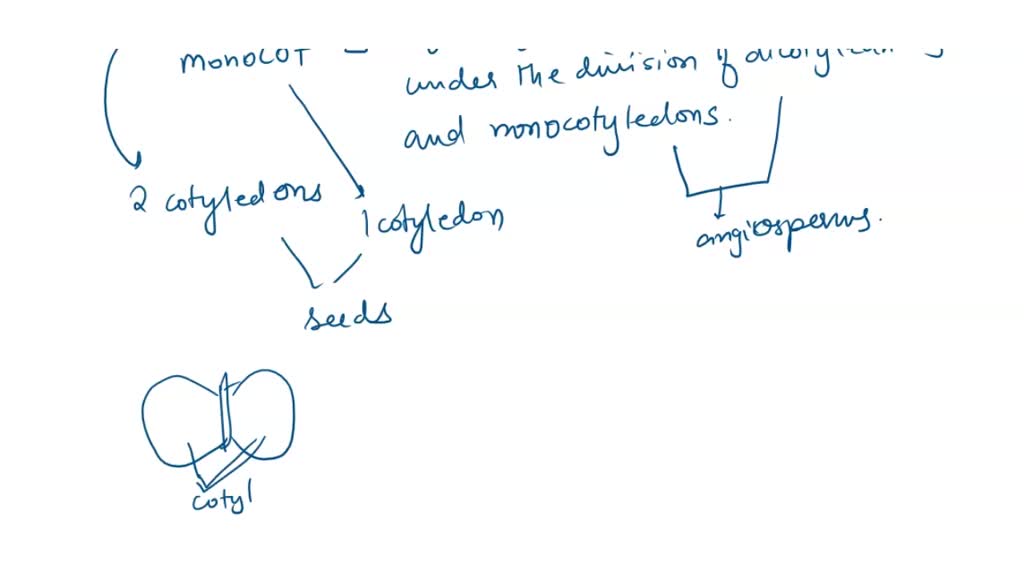 monocot
under the division of
and monocotyledons.
2 cotyledons
1 cotyledon
angiosperms.
seeds
cotyl